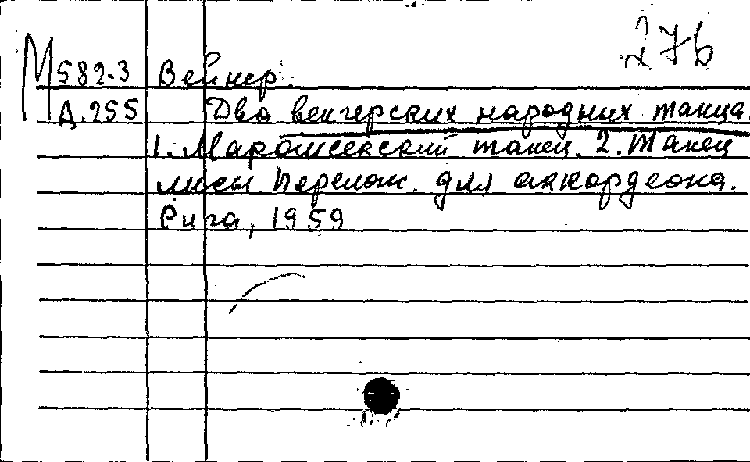 276
М 582-3 Вейнер.
Д. 255 Два венгерских народных танца.
1. Марошсекский танец. 2. Танец
лисы. Перелож. для аккордеона.
Рига, 1959